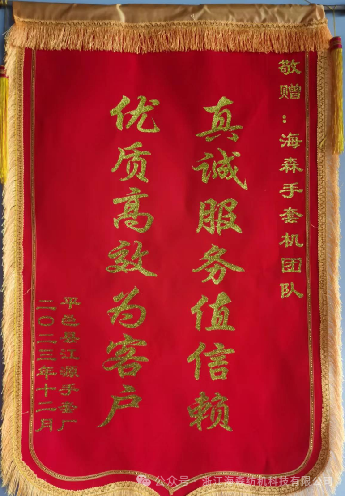 敬赠：海森手套机团队
真诚服务值信赖
优质高效为客户
平邑县江源手套厂
二〇二三年十二月
公众号·浙江海森纺机科技有限公司